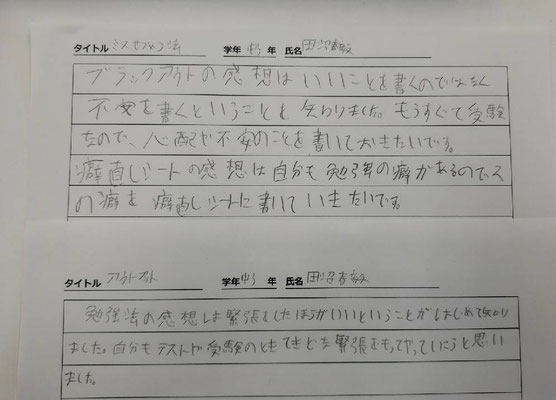 タイトル ミスゼツメツ法 学年 中3 年 氏名 田沼
ブラックアウトの感想はいいことを書くのではなく
不安を書くということを知りました。もうすぐで受験
なので、心配や不安のことを書いておきたいです。
癖直しシートの感想は自分も勉強の癖があるのでス
の癖を癖直しシートに書いていきたいです。
タイトル アウトプット 学年 中3 年 氏名 田沼
勉強法の感想は緊張をしたほうがいいということがはじめて知り
ました。自分もテストや受験のときてきどな緊張をもってやっていこうと思い
ました。